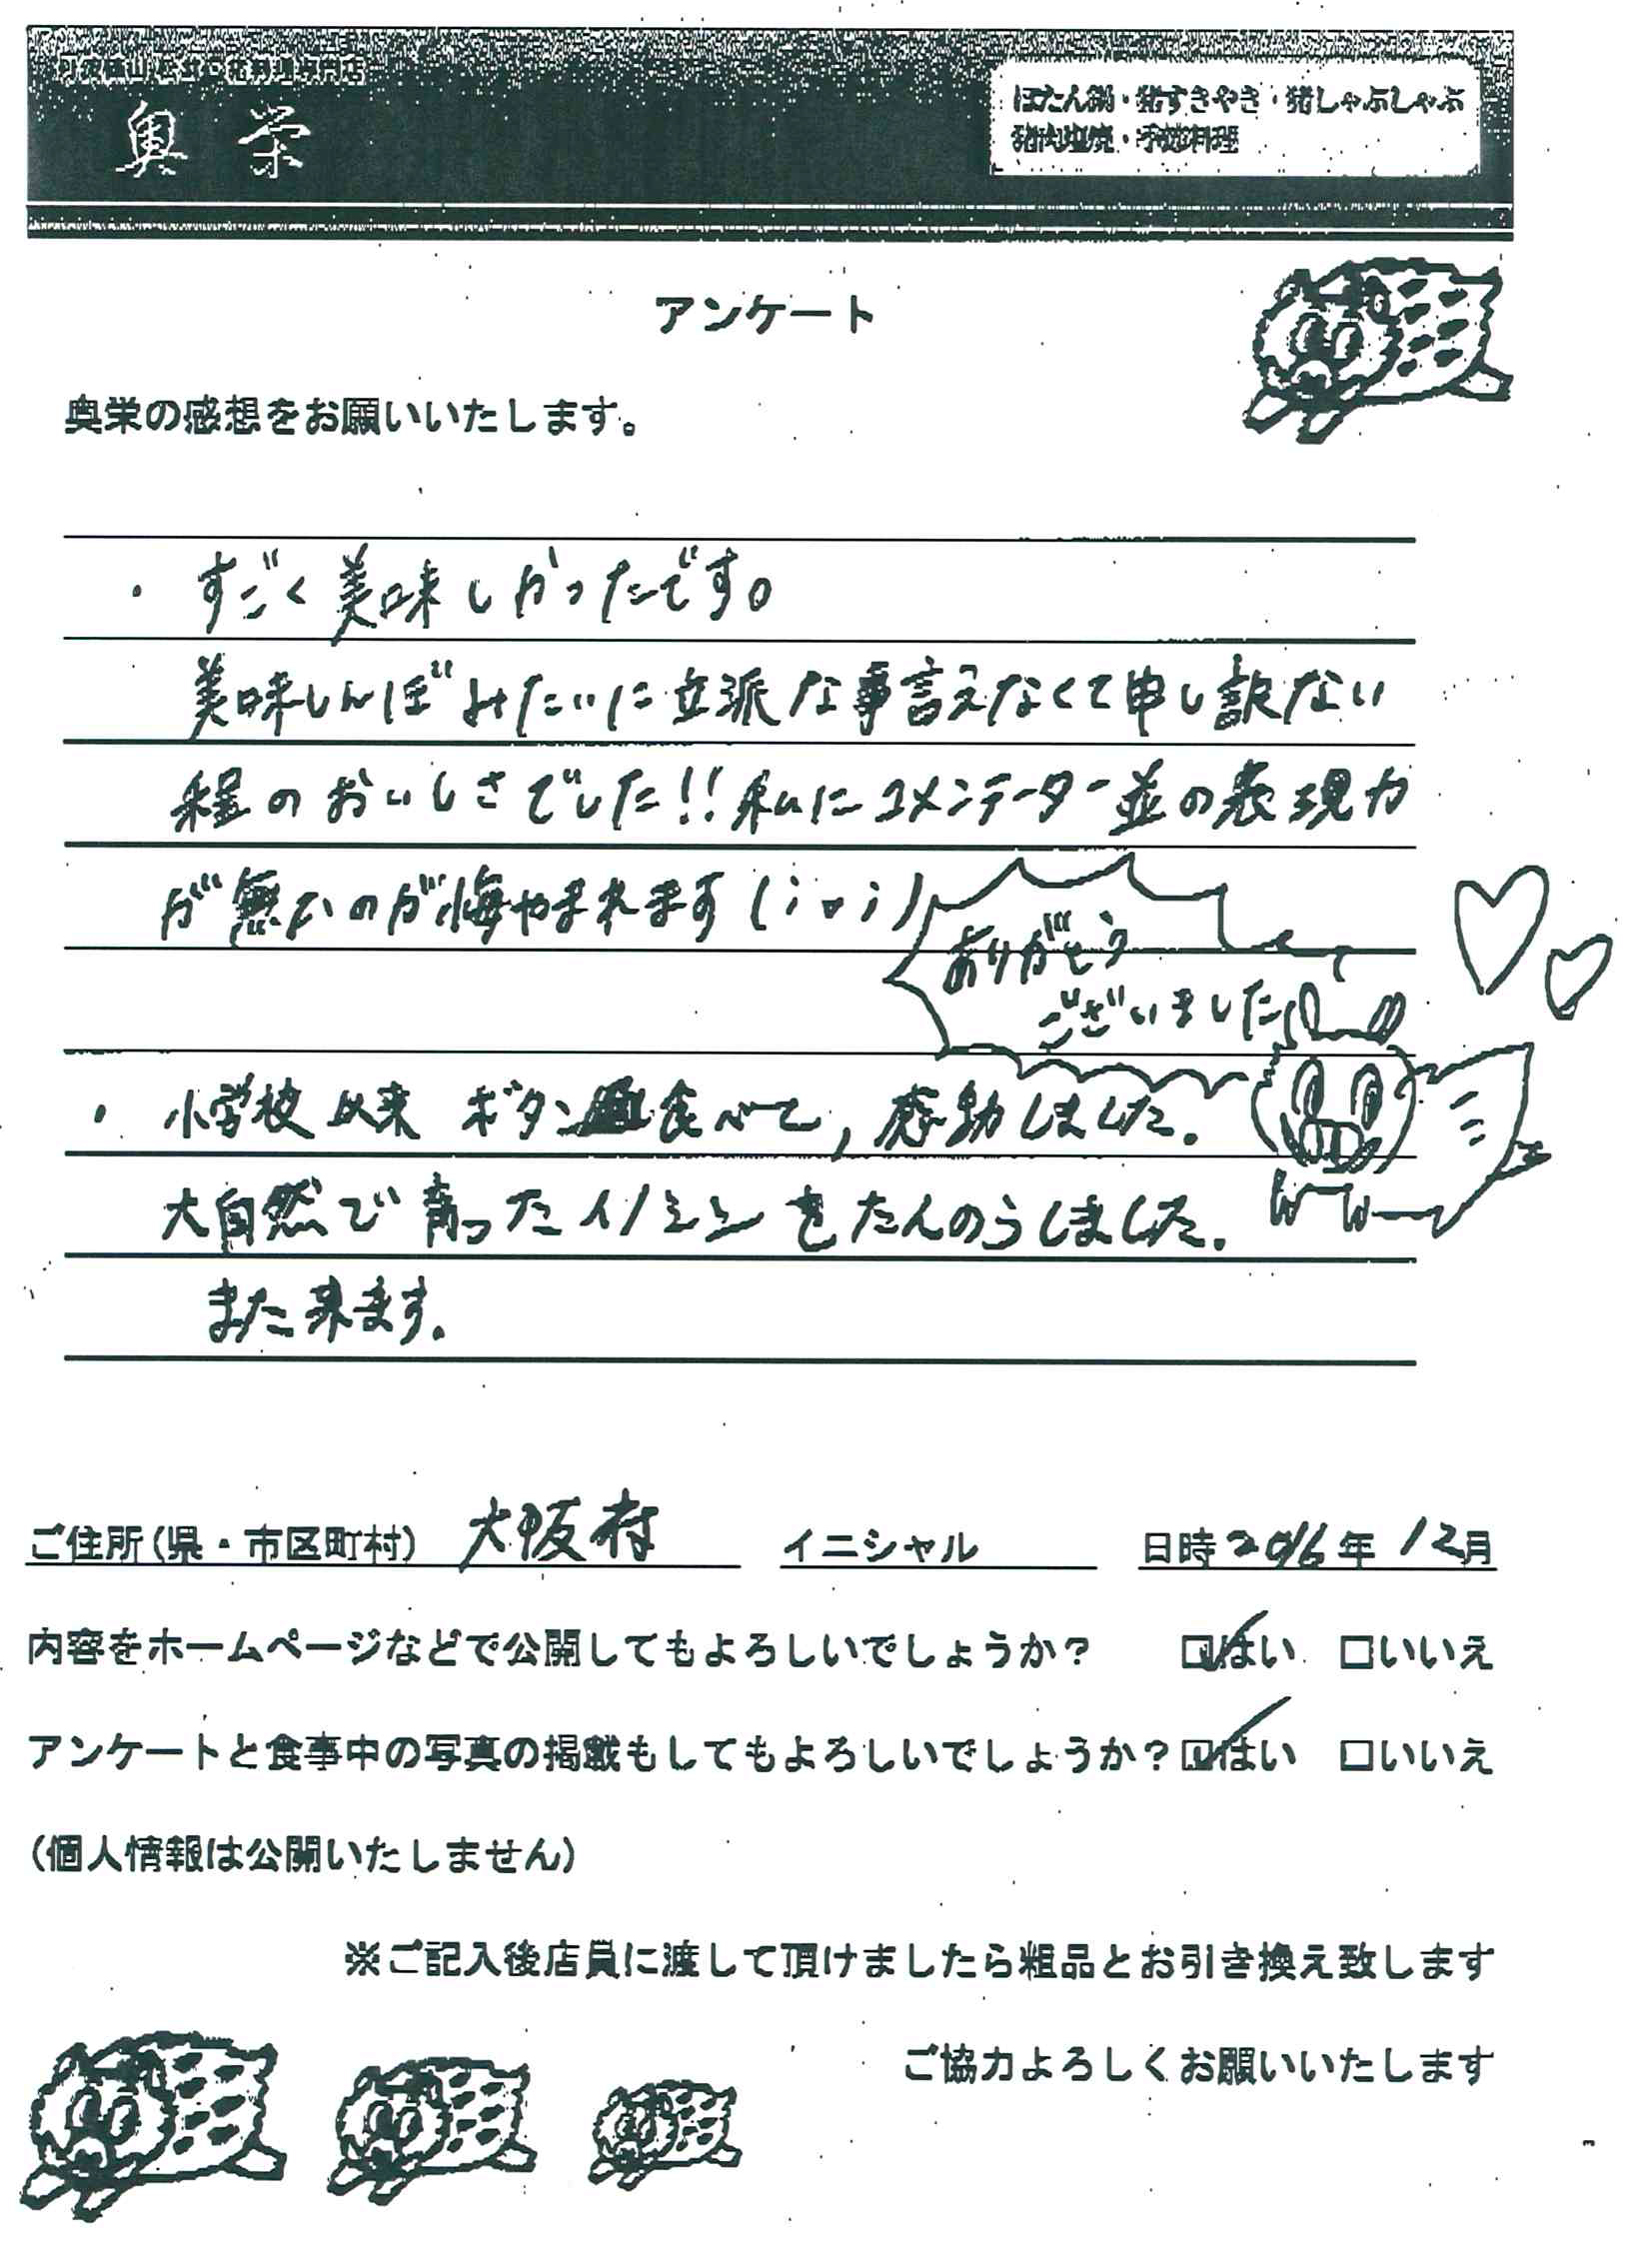 奥栄
ぼたん鍋・猪すきやき・猪しゃぶしゃぶ
猪肉塩焼・季節料理
アンケート
奥栄の感想をお願いいたします。
・すごく美味しかったです。
美味しんぼみたいに立派な事言えなくて申し訳ない
程のおいしさでした!!私にコメンテーター並の表現力
が無いのが悔やまれます(;o;)
ありがとう
ございました
・小学校以来 ボタン食べて,感動しました.
大自然で育ったイノシシをたんのうしました.
また来ます.
ご住所(県・市区町村) 大阪府 イニシャル 日時2016年12月
内容をホームページなどで公開してもよろしいでしょうか? ☑はい □いいえ
アンケートと食事中の写真の掲載もしてもよろしいでしょうか?☑はい □いいえ
(個人情報は公開いたしません)
※ご記入後店員に渡して頂けましたら粗品とお引き換え致します
ご協力よろしくお願いいたします